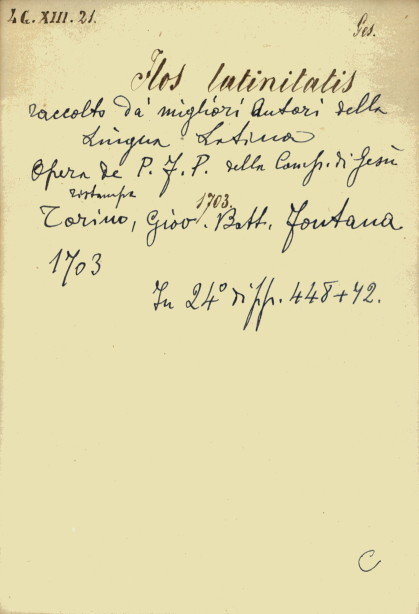 LC.XIII.21.
Ges.
Flos latinitatis
raccolto da' migliori Autori della
Lingua Latina
Opera de P. F. P. della Comp. di Gesù
ristampa
1703.
Torino, Giov. Batt. Fontana
1703
In 24° di pp. 448+42.
C